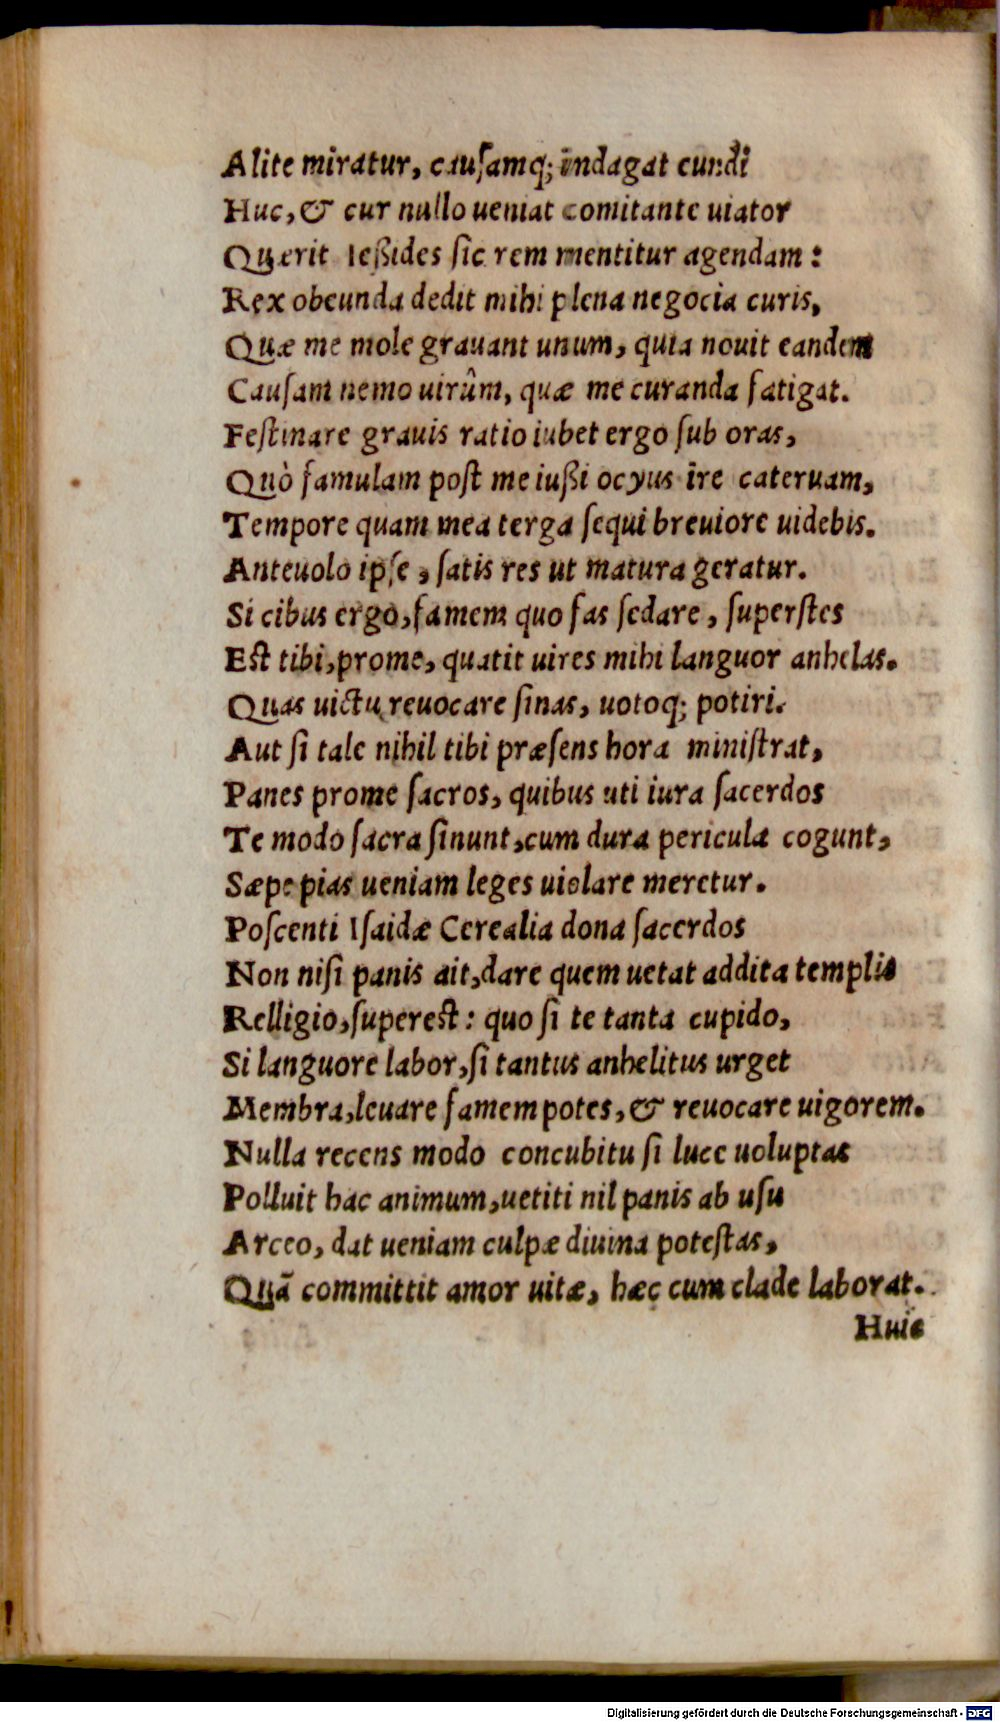 Alite miratur, cauſamq; indagat eundi
Huc, & cur nullo ueniat comitante uiator
Quærit Ießides ſic rem mentitur agendam:
Rex obeunda dedit mihi plena negocia curis,
Quæ me mole grauant unum, quia nouit eandem
Cauſam nemo uirûm, quæ me curanda fatigat.
Feſtinare grauis ratio iubet ergo ſub oras,
Quò famulam poſt me iußi ocyus ire cateruam,
Tempore quam mea terga ſequi breuiore uidebis.
Anteuolo ipſe, ſatis res ut matura geratur.
Si cibus ergo, famem quo fas ſedare, ſuperſtes
Eſt tibi, prome, quatit uires mihi languor anhelas.
Quas uictu reuocare ſinas, uotoq; potiri.
Aut ſi tale nihil tibi præſens hora miniſtrat,
Panes prome ſacros, quibus uti iura ſacerdos
Te modo ſacra ſinunt, cum dura pericula cogunt,
Sæpe pias ueniam leges uiolare meretur.
Poſcenti Iſaidæ Cerealia dona ſacerdos
Non niſi panis ait, dare quem uetat addita templis
Relligio, ſupereſt: quo ſi te tanta cupido,
Si languore labor, ſi tantus anhelitus urget
Membra, leuare famem potes, & reuocare uigorem.
Nulla recens modo concubitu ſi luce uoluptas
Polluit hac animum, uetiti nil panis ab uſu
Arceo, dat ueniam culpæ diuina poteſtas,
Quã committit amor uitæ, hæc cum clade laborat.
Huic
Digitalisierung gefördert durch die Deutsche Forschungsgemeinschaft - DFG